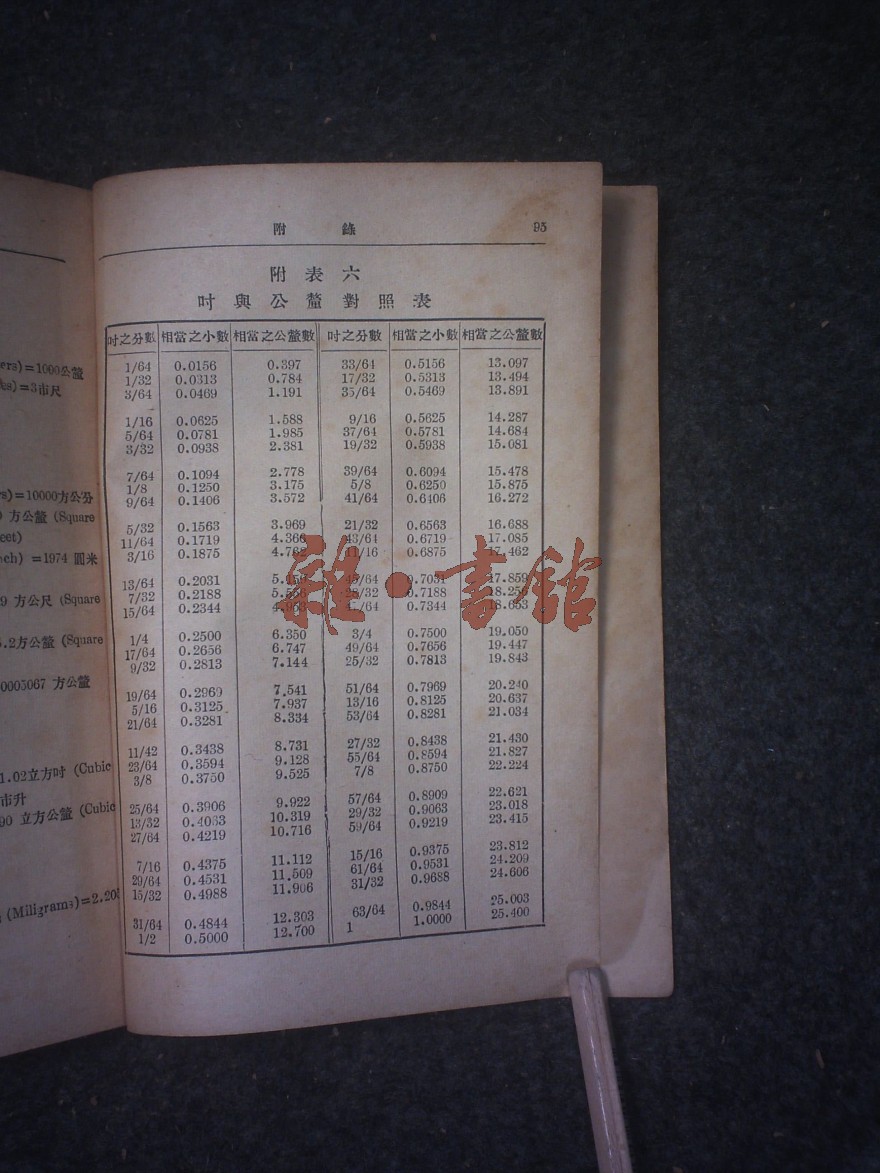 ers)=1000公釐
ts)=3市尺
rs)=10000方公分
方公釐 (Square
eet)
ch) =1974 圓米
9 方公尺 (Square
.2方公釐 (Square
0003067 方公釐
1.02立方吋 (Cubic
市升
00 立方公釐 (Cubic
(Miligrams)=2.20
附 錄 95
附 表 六
吋 與 公 釐 對 照 表
吋之分數 相當之小數 相當之公釐數 吋之分數 相當之小數 相當之公釐數
1/64 0.0156 0.397 33/64 0.5156 13.097
1/32 0.0313 0.784 17/32 0.5313 13.494
3/64 0.0469 1.191 35/64 0.5469 13.891
1/16 0.0625 1.588 9/16 0.5625 14.287
5/64 0.0781 1.985 37/64 0.5781 14.684
3/32 0.0938 2.381 19/32 0.5938 15.081
7/64 0.1094 2.778 39/64 0.6094 15.478
1/8 0.1250 3.175 5/8 0.6250 15.875
9/64 0.1406 3.572 41/64 0.6406 16.272
5/32 0.1563 3.969 21/32 0.6563 16.688
11/64 0.1719 4.366 43/64 0.6719 17.085
3/16 0.1875 4.762 11/16 0.6875 17.462
13/64 0.2031 45/64 0.7031 17.859
7/32 0.2188 0.7188
15/64 0.2344 0.7344
1/4 0.2500 6.350 3/4 0.7500 19.050
17/64 0.2656 6.747 49/64 0.7656 19.447
9/32 0.2813 7.144 25/32 0.7813 19.843
19/64 0.2969 7.541 51/64 0.7969 20.240
5/16 0.3125 7.937 13/16 0.8125 20.637
21/64 0.3281 8.334 53/64 0.8281 21.034
11/42 0.3438 8.731 27/32 0.8438 21.430
23/64 0.3594 9.128 55/64 0.8594 21.827
3/8 0.3750 9.525 7/8 0.8750 22.224
25/64 0.3906 9.922 57/64 0.8909 22.621
13/32 0.4063 10.319 29/32 0.9063 23.018
27/64 0.4219 10.716 59/64 0.9219 23.415
7/16 0.4375 11.112 15/16 0.9375 23.812
29/64 0.4531 11.509 61/64 0.9531 24.209
15/32 0.4988 11.906 31/32 0.9688 24.606
31/64 0.4844 12.303 63/64 0.9844 25.003
1/2 0.5000 12.700 1 1.0000 25.400
雜·書館